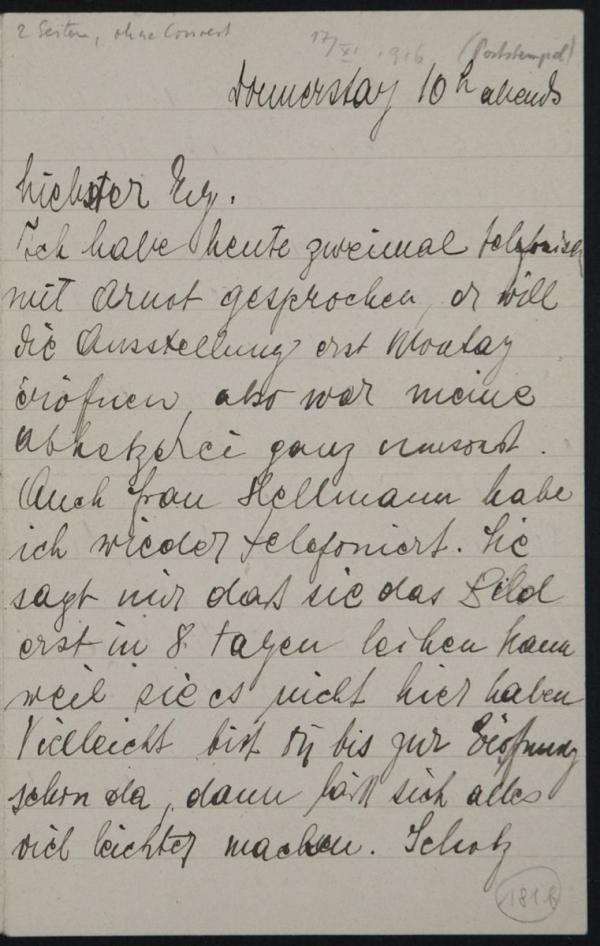 2 Seiten, ohne Couvert
17/XI. 1916 (Poststempel)
Donnerstag 10 h abends
Liebster Eg.
Ich habe heute zweimal telefonisch
mit Arnot gesprochen, er will
die Ausstellung erst Montag
eröfnen, also war meine
Abhetzerei ganz umsonst.
Auch Frau Hellmann habe
ich wieder telefoniert. Sie
sagt mir daß sie das Bild
erst in 8 Tagen leihen kann
weil sie es nicht hier haben
Vielleicht bist du bis zur Eröffnung
schon da, dann läßt sich alles
viel leichter machen. Scholz